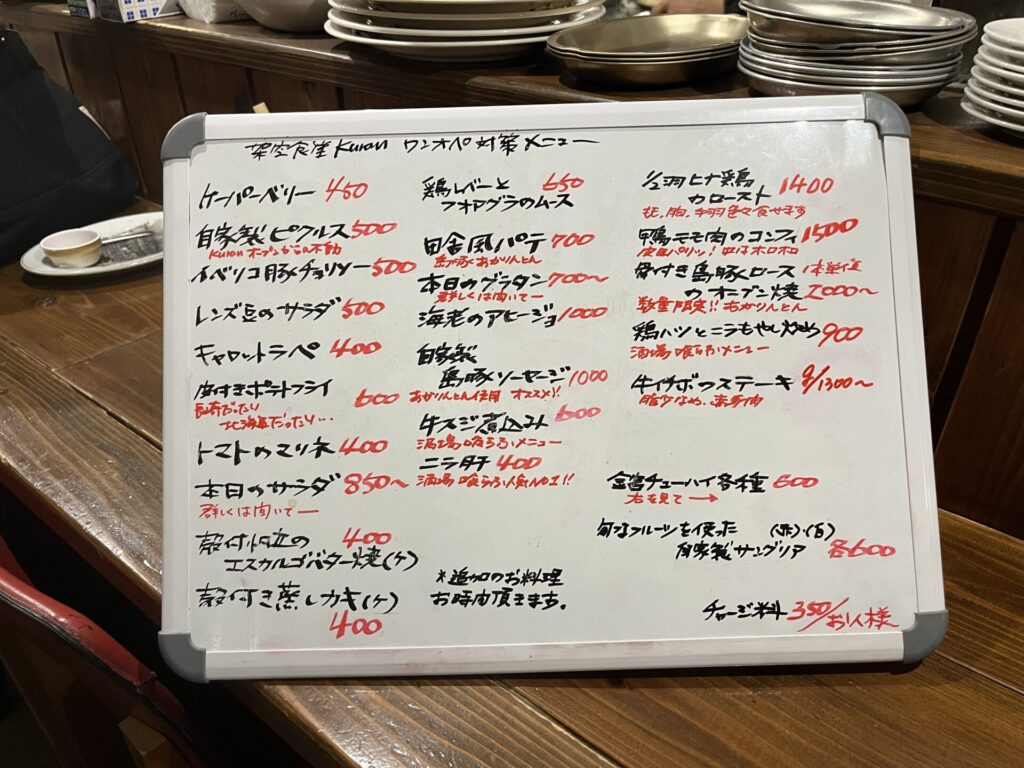 架空食堂 Kuran ワンオペ対策メニュー
ケーパーベリー 450
自家製ピクルス 500
Kuranオープンからの不動
イベリコ豚チョリソー 500
レンズ豆のサラダ 500
キャロットラペ 400
皮付きポテトフライ 600
長崎だったり
北海道だったり…
トマトのマリネ 400
本日のサラダ 850〜
詳しくは聞いてー
殻付帆立の 400
エスカルゴバター焼(ケ)
殻付き蒸しカキ(ケ)
400
鶏レバーと 650
フォアグラのムース
田舎風パテ 700
島豚あかりんとん
本日のグラタン 700〜
詳しくは聞いてー
海老のアヒージョ 1000
自家製
島豚ソーセージ 1000
あかりんとん使用 オススメ!!
牛スジ煮込み 600
酒場喰らふメニュー
ニラ玉子 400
酒場喰らふ人気No1!!
*追加のお料理
お時間頂きます。
1/2羽ヒナ鶏 1400
のロースト
もも、胸、手羽色々食せます
鴨モモ肉のコンフィ 1500
皮目パリッ!中はホロホロ
骨付き島豚ロース 1本単位
のオーブン焼 2000〜
数量限定!!あかりんとん
鶏ハツとニラもやし炒め 900
酒場喰らふメニュー
牛イチボのステーキ 9/1300〜
脂少なめ、赤身肉
金宮チューハイ各種 600
右を見て→
旬なフルーツを使った (赤)・(白)
自家製サングリア 各600
チャージ料 350/お1人様